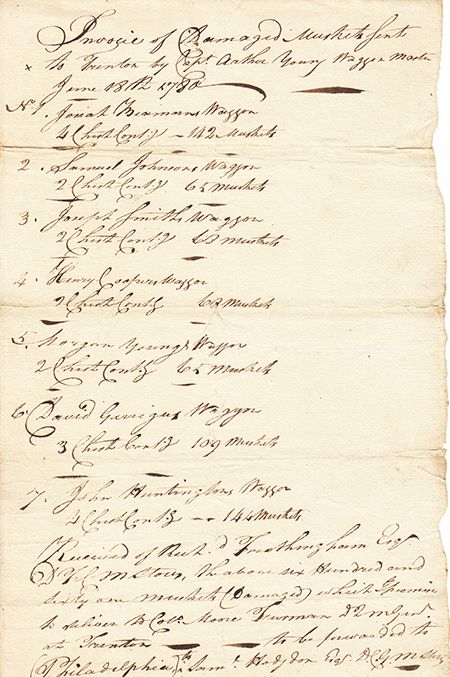 Invoice of Damaged Muskets sent
to Trenton by Capt Arther Young Waggon Master
June 18th 1780
No 1. Josiah Beamans Waggon
4 Chests Contg — 142 Muskets
2. Samuel Johnsons Waggon
2 Chests Contg 65 Muskets
3. Joseph Smiths Waggon
2 Chests Contg 68 Muskets
4. Henry Coopers Waggon
2 Chests Contg 68 Muskets
5. Morgan Youngs Waggon
2 Chests Contg 65 Muskets
6. David Garrigus Waggon
3 Chests Contg 109 Muskets
7. John Huntingtons Waggon
4 Chests Contg — 144 Muskets
Received of Rich.d Frothingham Esqr
M Stores, the above six Hundred and
sixty one muskets (Damaged) which I promise
to deliver to Colo. Moore Furman D Q m Genl
at Trenton — to be forwarded to
Philadelphia, to Saml Hodgdon Esqr